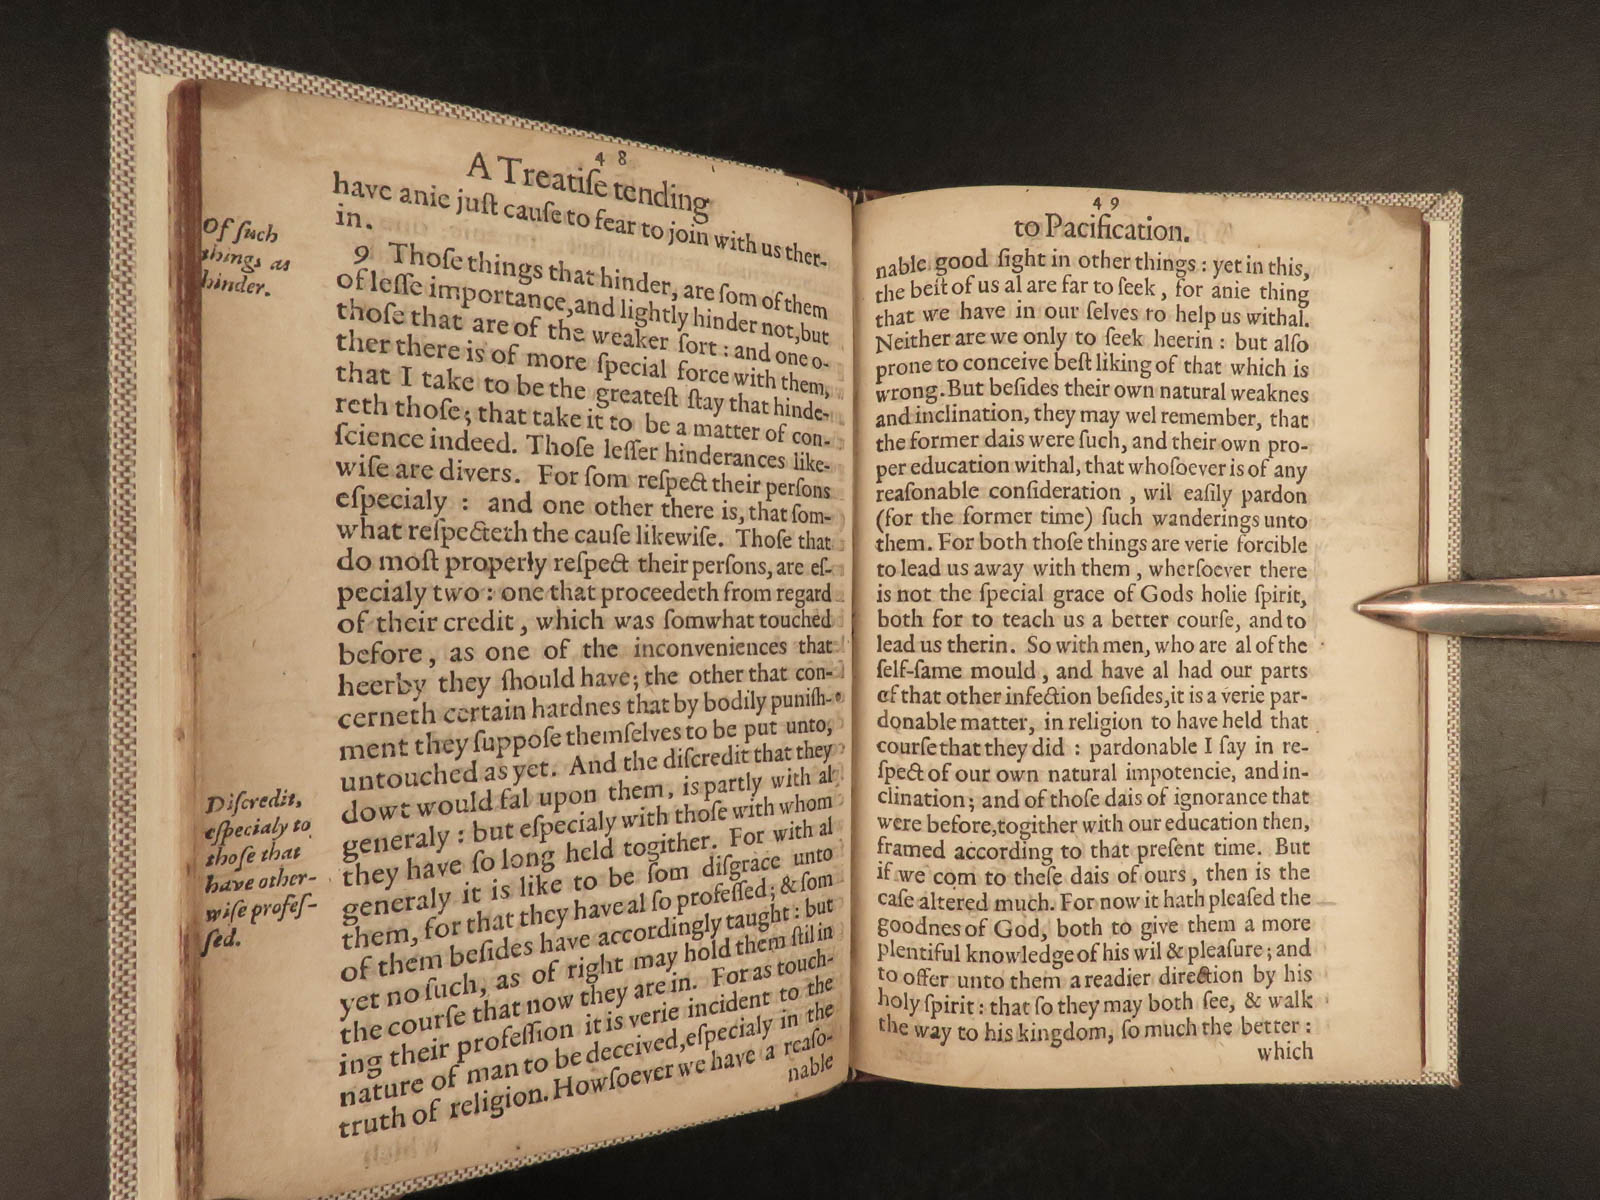 48
A Treatiſe tending
have anie juſt cauſe to fear to join with us ther-
in.
Of ſuch
things as
hinder.
9 Thoſe things that hinder, are ſom of them
of leſſe importance, and lightly hinder not, but
thoſe that are of the weaker ſort : and one o-
ther there is of more ſpecial force with them,
that I take to be the greateſt ſtay that hinde-
reth thoſe; that take it to be a matter of con-
ſcience indeed. Thoſe leſſer hinderances like-
wiſe are divers. For ſom reſpect their perſons
eſpecialy : and one other there is, that ſom-
what reſpecteth the cauſe likewiſe. Thoſe that
do moſt properly reſpect their perſons, are eſ-
pecialy two : one that proceedeth from regard
of their credit, which was ſomwhat touched
before, as one of the inconveniences that
heerby they ſhould have; the other that con-
cerneth certain hardnes that by bodily puniſh-
ment they ſuppoſe themſelves to be put unto,
untouched as yet. And the diſcredit that they
Diſcredit,
eſpecialy to
thoſe that
have other-
wiſe profeſ-
ſed.
dowt would fal upon them, is partly with al
generaly : but eſpecialy with thoſe with whom
they have ſo long held togither. For with al
generaly it is like to be ſom diſgrace unto
them, for that they have al ſo profeſſed; & ſom
of them beſides have accordingly taught : but
yet no ſuch, as of right may hold them ſtil in
the courſe that now they are in. For as touch-
ing their profeſſion it is verie incident to the
nature of man to be deceived, eſpecialy in the
truth of religion. Howſoever we have a reaſo-
nable
49
to Pacification.
nable good ſight in other things : yet in this,
the beſt of us al are far to ſeek, for anie thing
that we have in our ſelves to help us withal.
Neither are we only to ſeek heerin : but alſo
prone to conceive beſt liking of that which is
wrong. But beſides their own natural weaknes
and inclination, they may wel remember, that
the former dais were ſuch, and their own pro-
per education withal, that whoſoever is of any
reaſonable conſideration , wil eaſily pardon
(for the former time) ſuch wanderings unto
them. For both thoſe things are verie forcible
to lead us away with them , wherſoever there
is not the ſpecial grace of Gods holie ſpirit,
both for to teach us a better courſe, and to
lead us therin. So with men, who are al of the
ſelf-ſame mould , and have al had our parts
of that other infection beſides, it is a verie par-
donable matter, in religion to have held that
courſe that they did : pardonable I ſay in re-
ſpect of our own natural impotencie, and in-
clination; and of thoſe dais of ignorance that
were before, togither with our education then,
framed according to that preſent time. But
if we com to theſe dais of ours, then is the
caſe altered much. For now it hath pleaſed the
goodnes of God, both to give them a more
plentiful knowledge of his wil & pleaſure; and
to offer unto them a readier direction by his
holy ſpirit : that ſo they may both ſee, & walk
the way to his kingdom, ſo much the better :
which